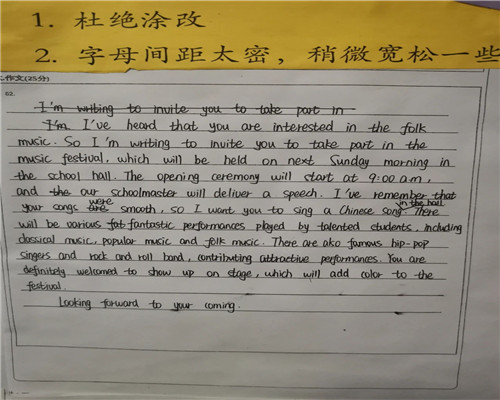 1. 杜绝涂改
2. 字母间距太密，稍微宽松一些
作文(25分)
62.
I'm writing to invite you to take part in
I'm I've heard that you are interested in the folk
music. So I'm writing to invite you to take part in the
music festival, which will be held on next Sunday morning in
the school hall. The opening ceremony will start at 9:00 a.m,
and the our schoolmaster will deliver a speech. I've remember that
your songs are were smooth, so I want you to sing a Chinese song in the hall. There
will be various fat fantastic performances played by talented students, including
classical music, popular music and folk music. There are also famous hip-pop
singers and rock and roll band, contributing attractive performances. You are
definitely welcomed to show up on stage, which will add color to the
festival.
Looking forward to your coming.